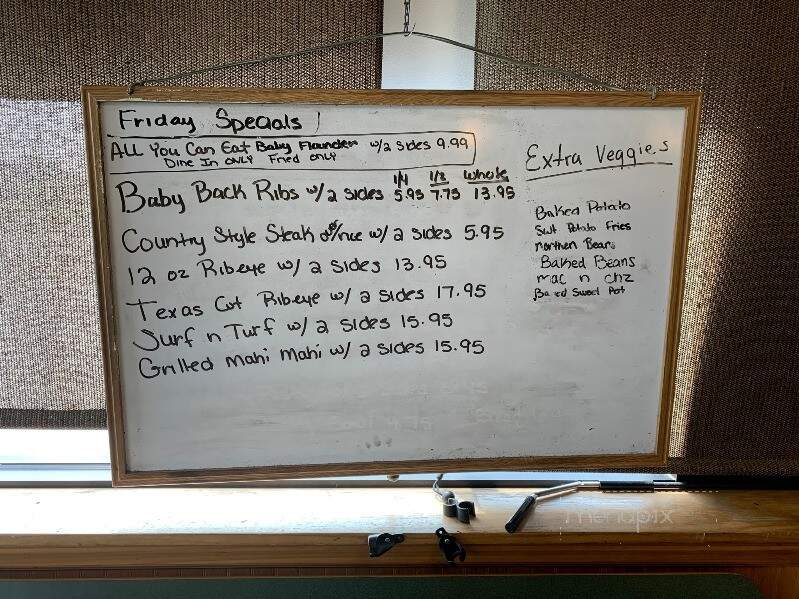 Friday Specials
ALL You Can Eat Baby Flounder w/2 sides 9.99
Dine In ONLY Fried ONLY
1/4 1/2 whole
Baby Back Ribs w/2 sides 5.95 7.75 13.95
Country Style Steak w/2 sides 5.95
12 oz Ribeye w/2 sides 13.95
Texas Cut Ribeye w/2 sides 17.95
Surf n Turf w/2 sides 15.95
Grilled Mahi Mahi w/2 sides 15.95
Extra Veggies
Baked Potato
Swt Potato Fries
Northen Beans
Baked Beans
mac n chz
Baked Sweet Pot
menupix